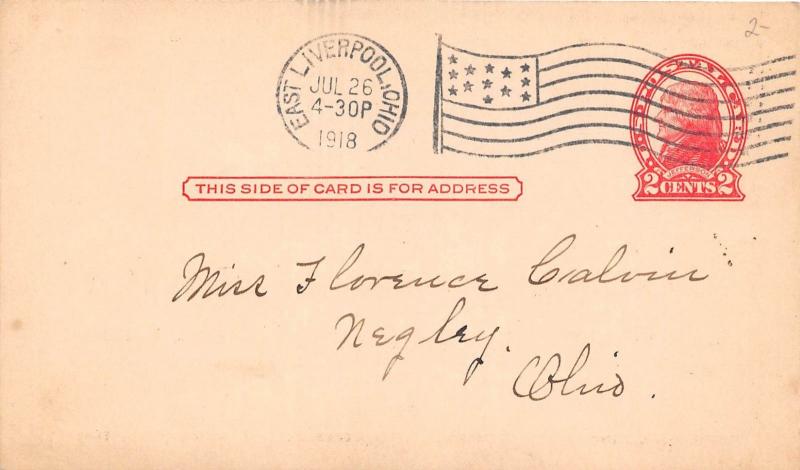 2-
EAST LIVERPOOL, OHIO
JUL 26
4-30P
1918
U.S. POSTAGE
JEFFERSON
2 CENTS 2
THIS SIDE OF CARD IS FOR ADDRESS
Miss Florence Calvin
Negley.
Ohio.